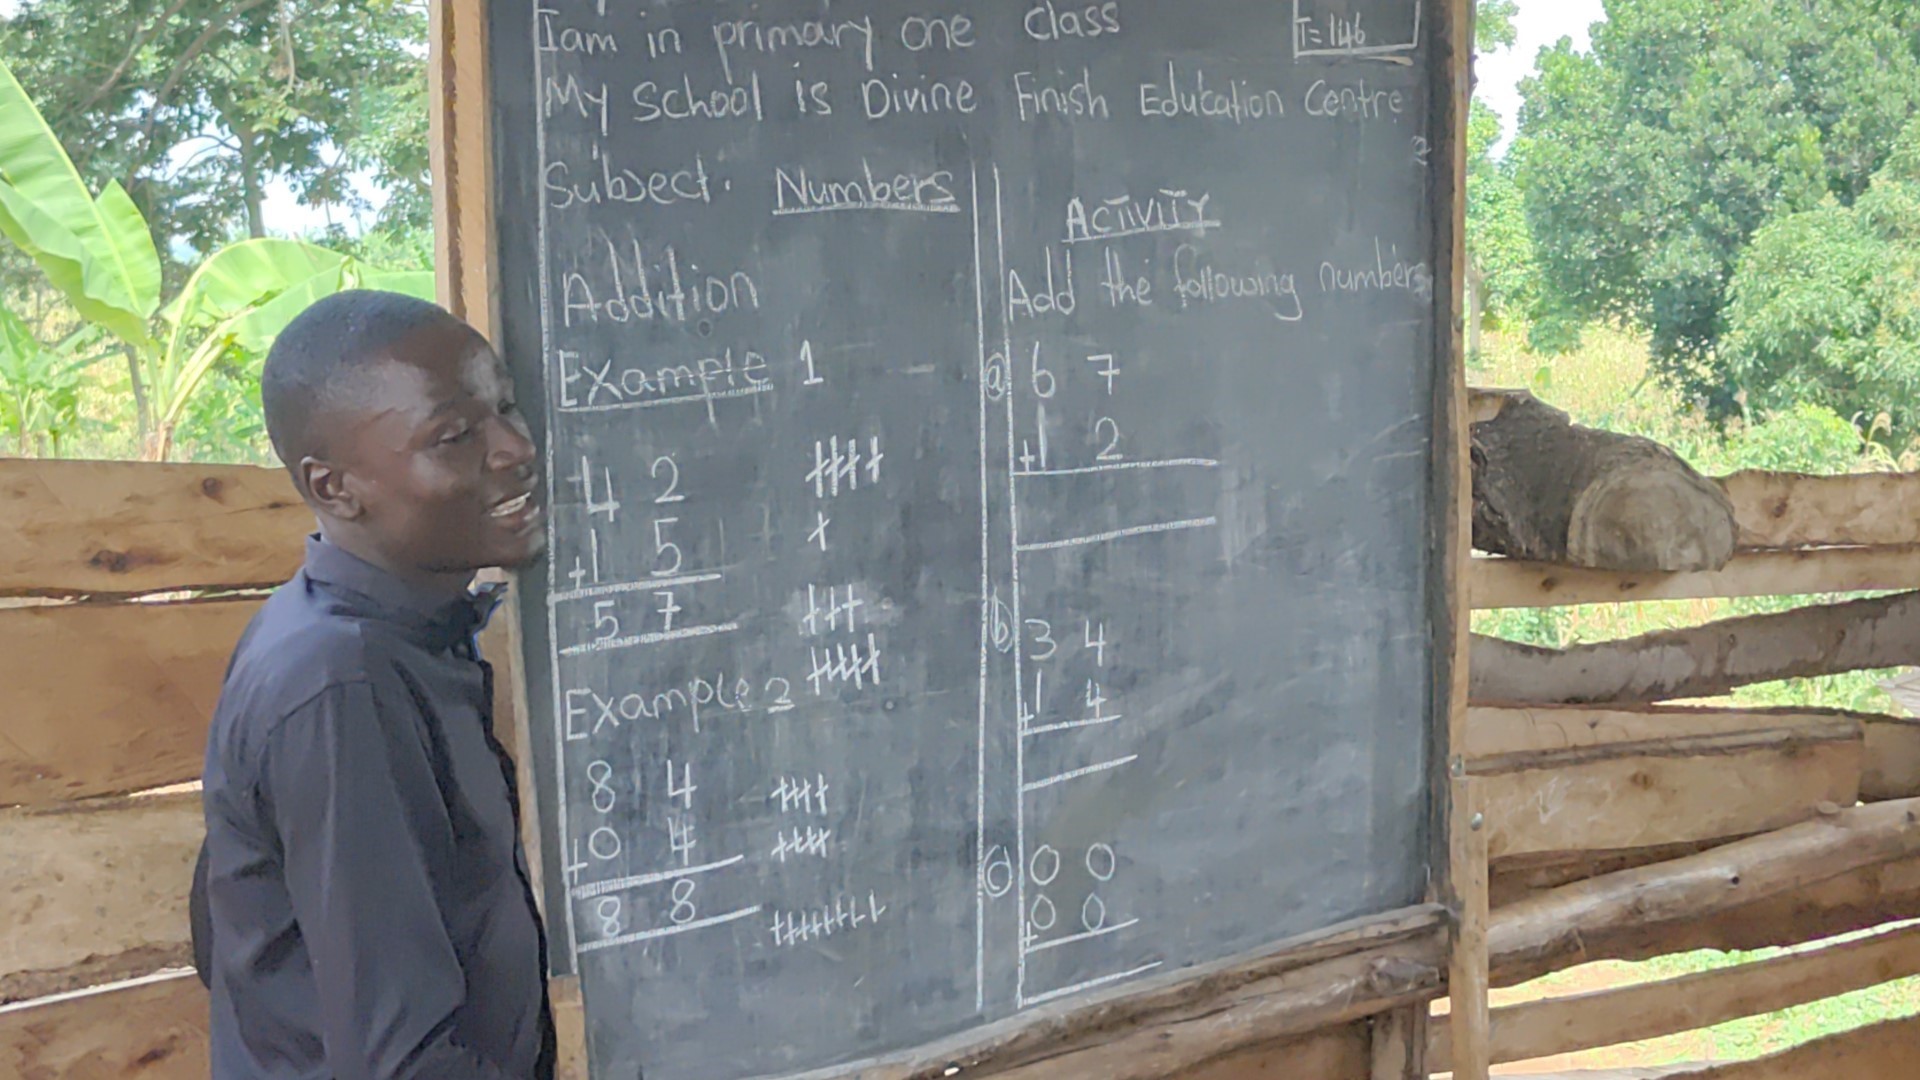 I am in primary one class
T=146
My School is Divine Finish Education Centre
Subject. Numbers
Addition
Example 1
4 2
+1 5
5 7
Example 2
8 4
+0 4
8 8
ACTIVITY
Add the following numbers
(a) 6 7
+1 2
(b) 3 4
+1 4
(c) 0 0
+0 0